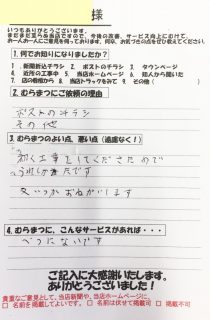 様
いつもありがとうございます。
まだまだ至らぬ当店ですので、今後の改善、サービス向上にむけて、
お一人お一人にご意見を伺っております。何卒、お気づきの点をぜひ教えてください。
1.何でお知りになりましたか?
1. 新聞折込チラシ 2. ポストのチラシ 3. タウンページ
4. 近所の工事中 5. 当店ホームページ 6. 知人から聞いた
7. 店の看板から 8. 当店トラックをみて 9. その他( )
2.むらまつにご依頼の理由
ポストのチラシ
その他
3.むらまつのよい点、悪い点(遠慮なく!)
工事をしてくださったので
うれしかったです
又いつかおねがいします
4.むらまつに、こんなサービスがあれば・・・
べつにないです
ご記入に大感謝いたします。
ありがとうございました!
貴重なご意見として、当店新聞や、当店ホームページに、
□ 名前を掲載してよい。 □ 名前は伏せて掲載可 □ 掲載不可